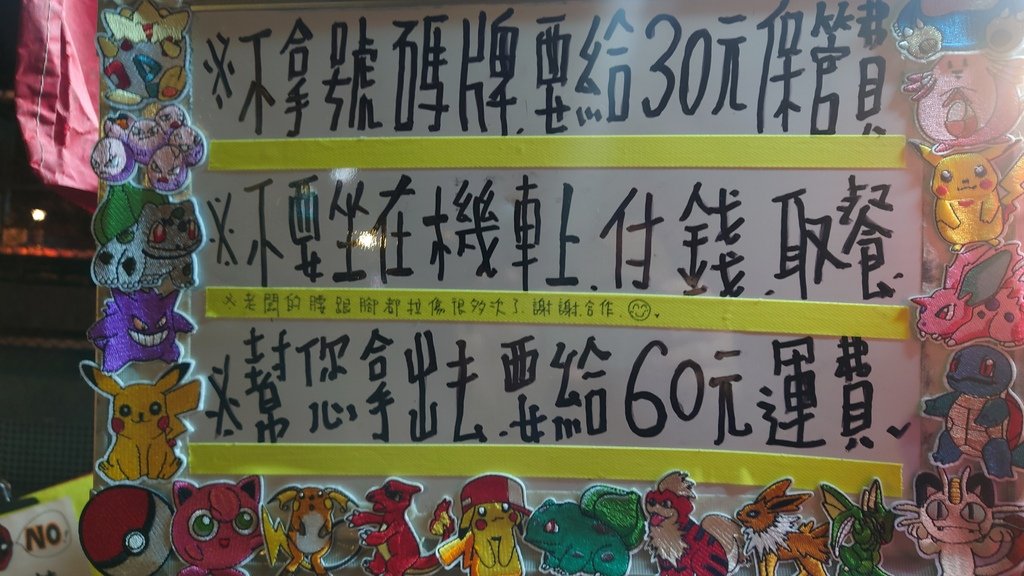 ※不拿號碼牌.要給30元保管費.
※不要坐在機車上.付錢.取餐.
※老闆的腰跟腳都拉傷很多次了.謝謝合作.
※幫您拿出去.要給60元運費
NO